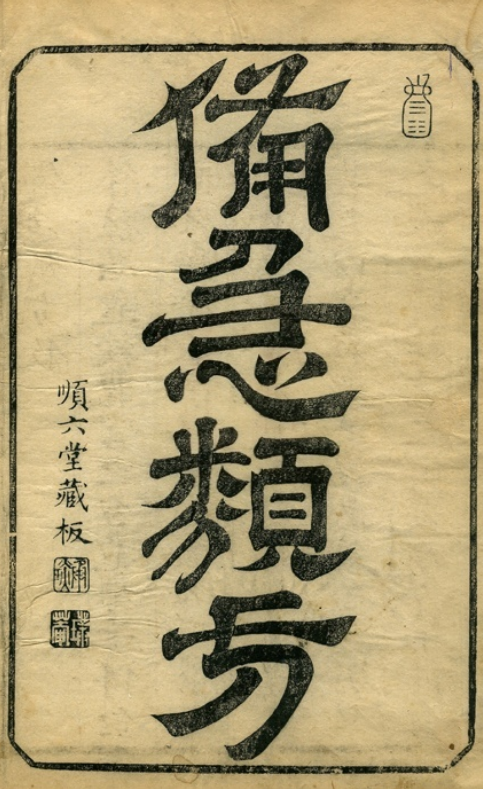 備急類方
順六堂藏板